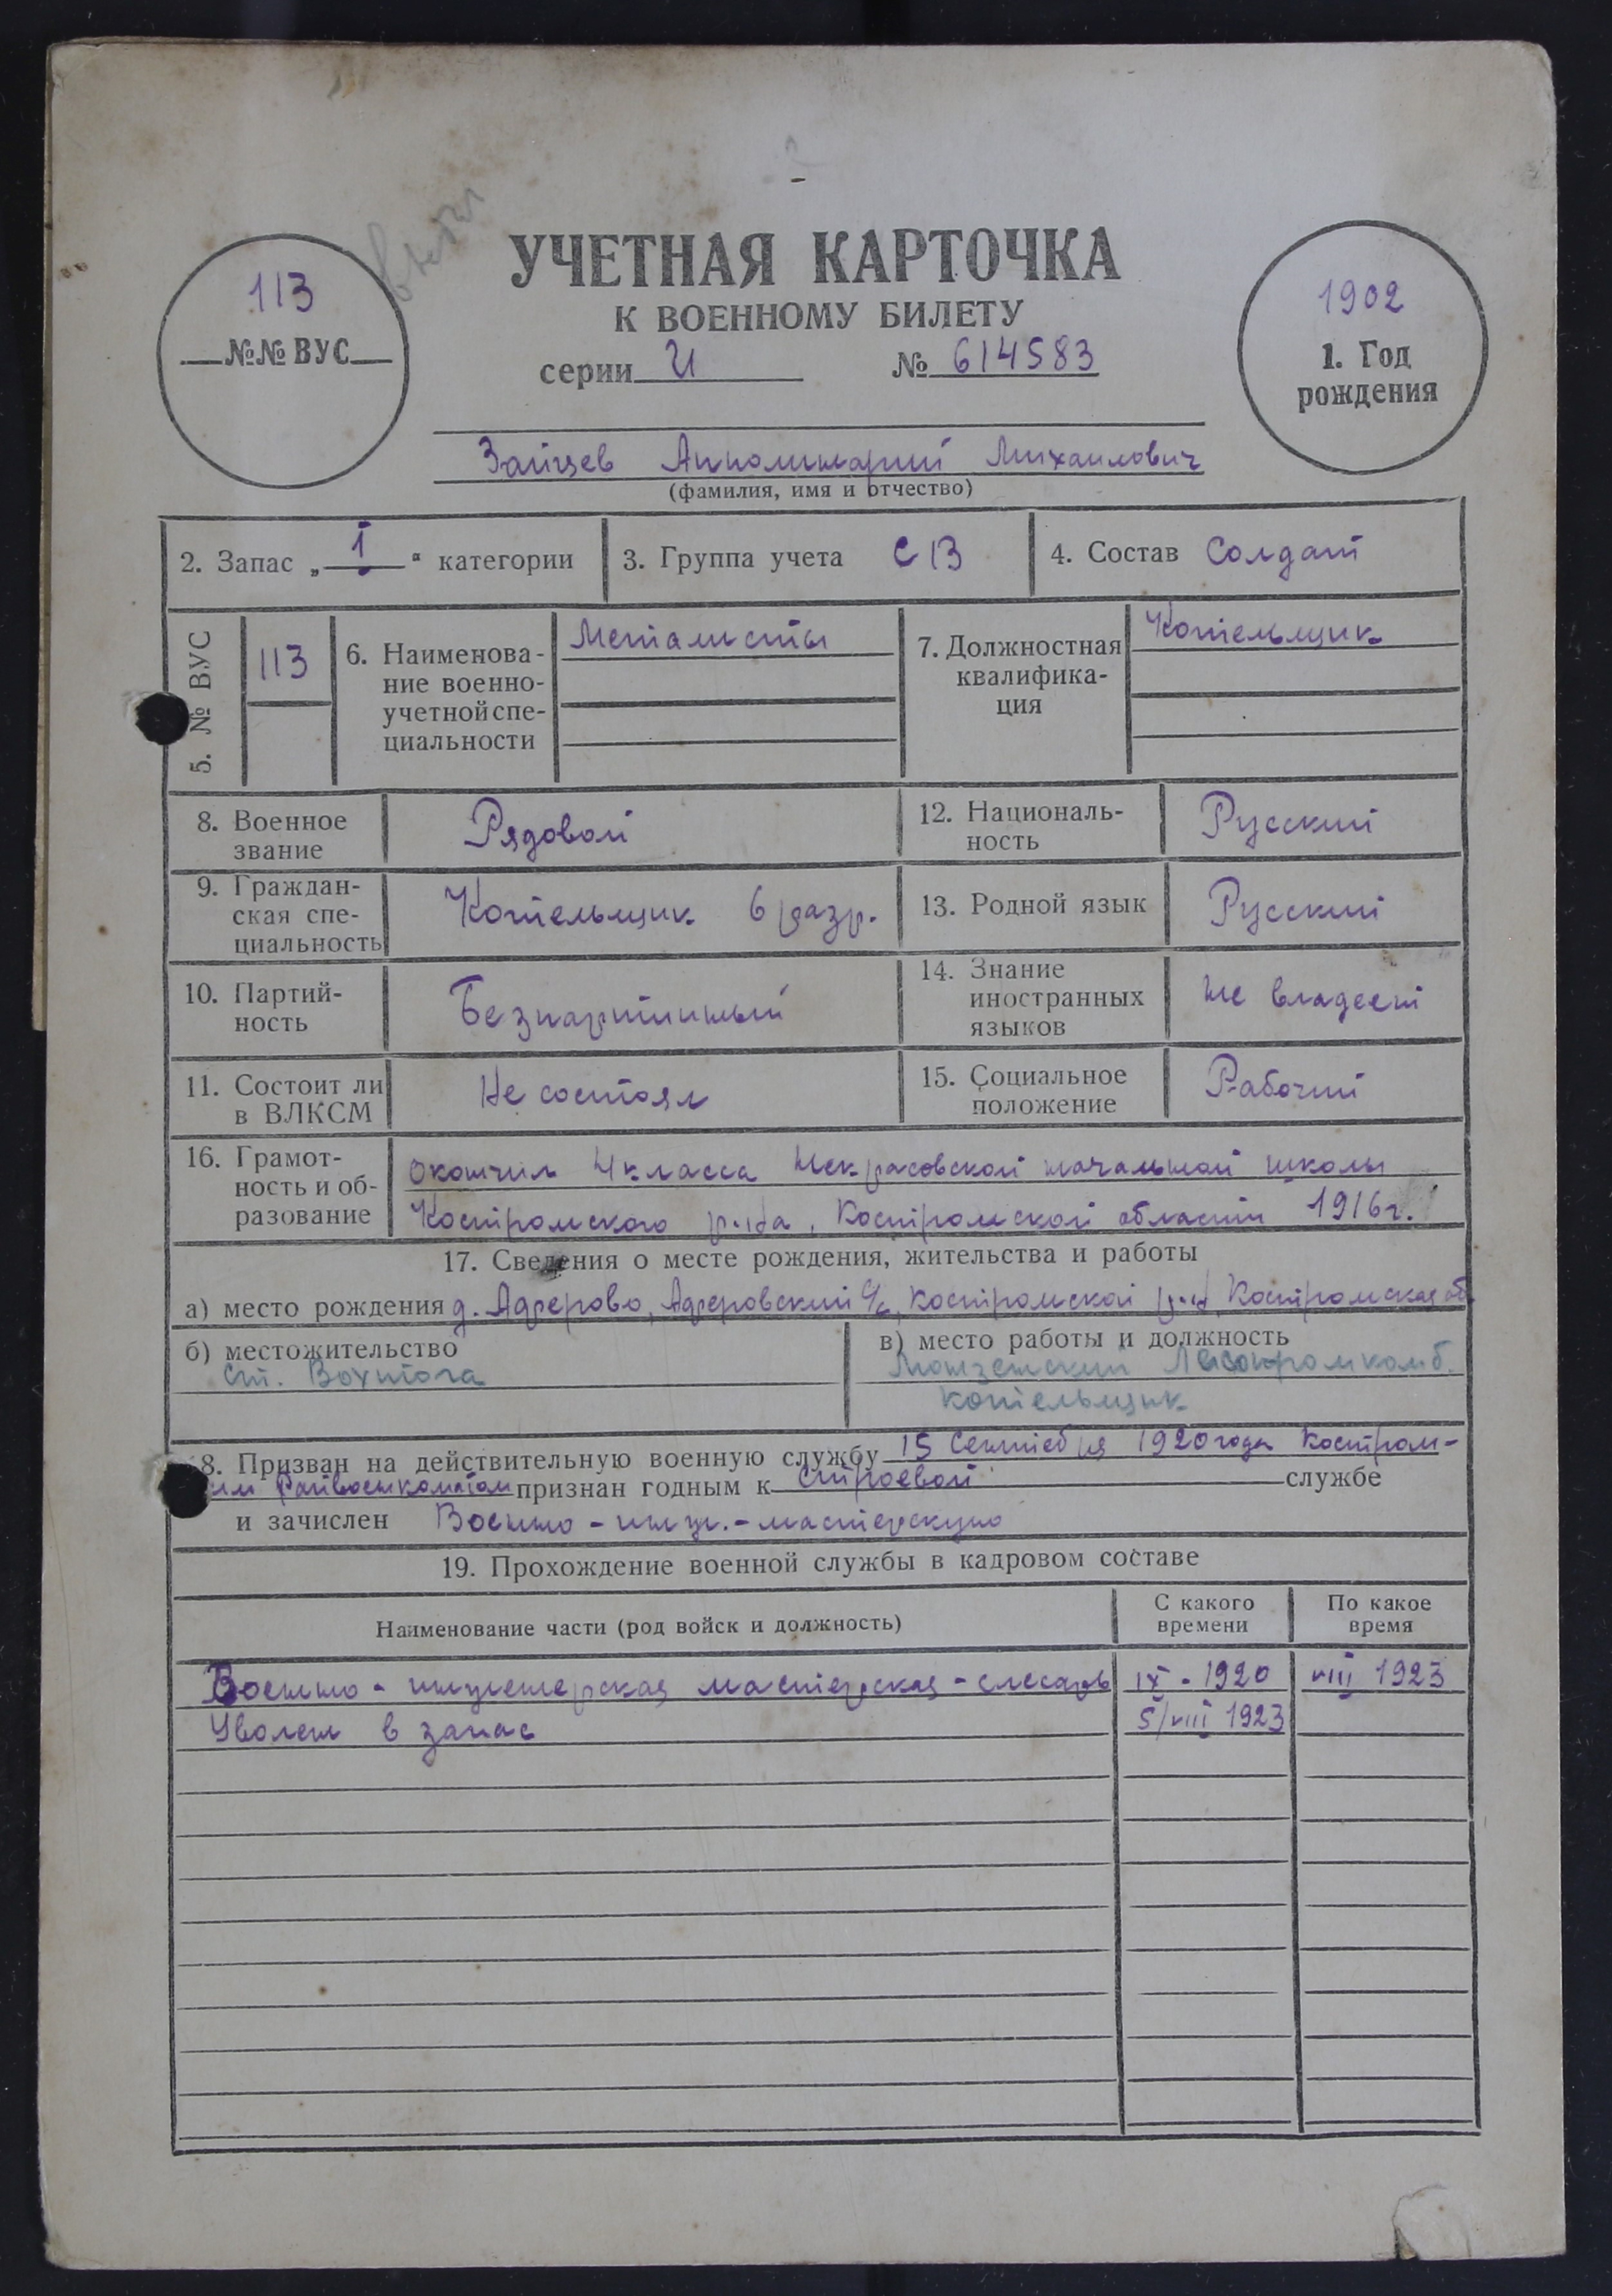 113
№№ ВУС
УЧЕТНАЯ КАРТОЧКА
К ВОЕННОМУ БИЛЕТУ
серии И № 614583
1902
1. Год
рождения
Зайцев Апполинарий Михаилович
(фамилия, имя и отчество)
2. Запас „ I " категории
3. Группа учета СВ
4. Состав Солдат
5. № ВУС
113
6. Наименова-
ние военно-
учетной спе-
циальности
Металисты
7. Должностная
квалифика-
ция
Котельщик
8. Военное
звание
Рядовой
12. Националь-
ность
Русский
9. Граждан-
ская спе-
циальность
Котельщик 6 разр.
13. Родной язык
Русский
10. Партий-
ность
Безпартийный
14. Знание
иностранных
языков
не владеет
11. Состоит ли
в ВЛКСМ
Не состоял
15. Социальное
положение
Рабочий
16. Грамот-
ность и об-
разование
окончил 4 класса Некрасовской начальной школы
Костромского р-на, Костромской области 1916 г.
17. Сведения о месте рождения, жительства и работы
а) место рождения д. Адрерово, Адреровский с/с, Костромской р-н Костромская об
б) местожительство
ст. Вохтога
в) место работы и должность
Монзенский Лесопромкомб.
котельщик
8. Призван на действительную военную службу 15 Сентября 1920 года Костром-
ким Райвоенкоматом признан годным к строевой службе
и зачислен Военно-инж.-мастерскую
19. Прохождение военной службы в кадровом составе
Наименование части (род войск и должность)
С какого
времени
По какое
время
Военно-инженерская мастерская - слесарь IX - 1920 VIII 1923
Уволен в запас 5/VIII 1923